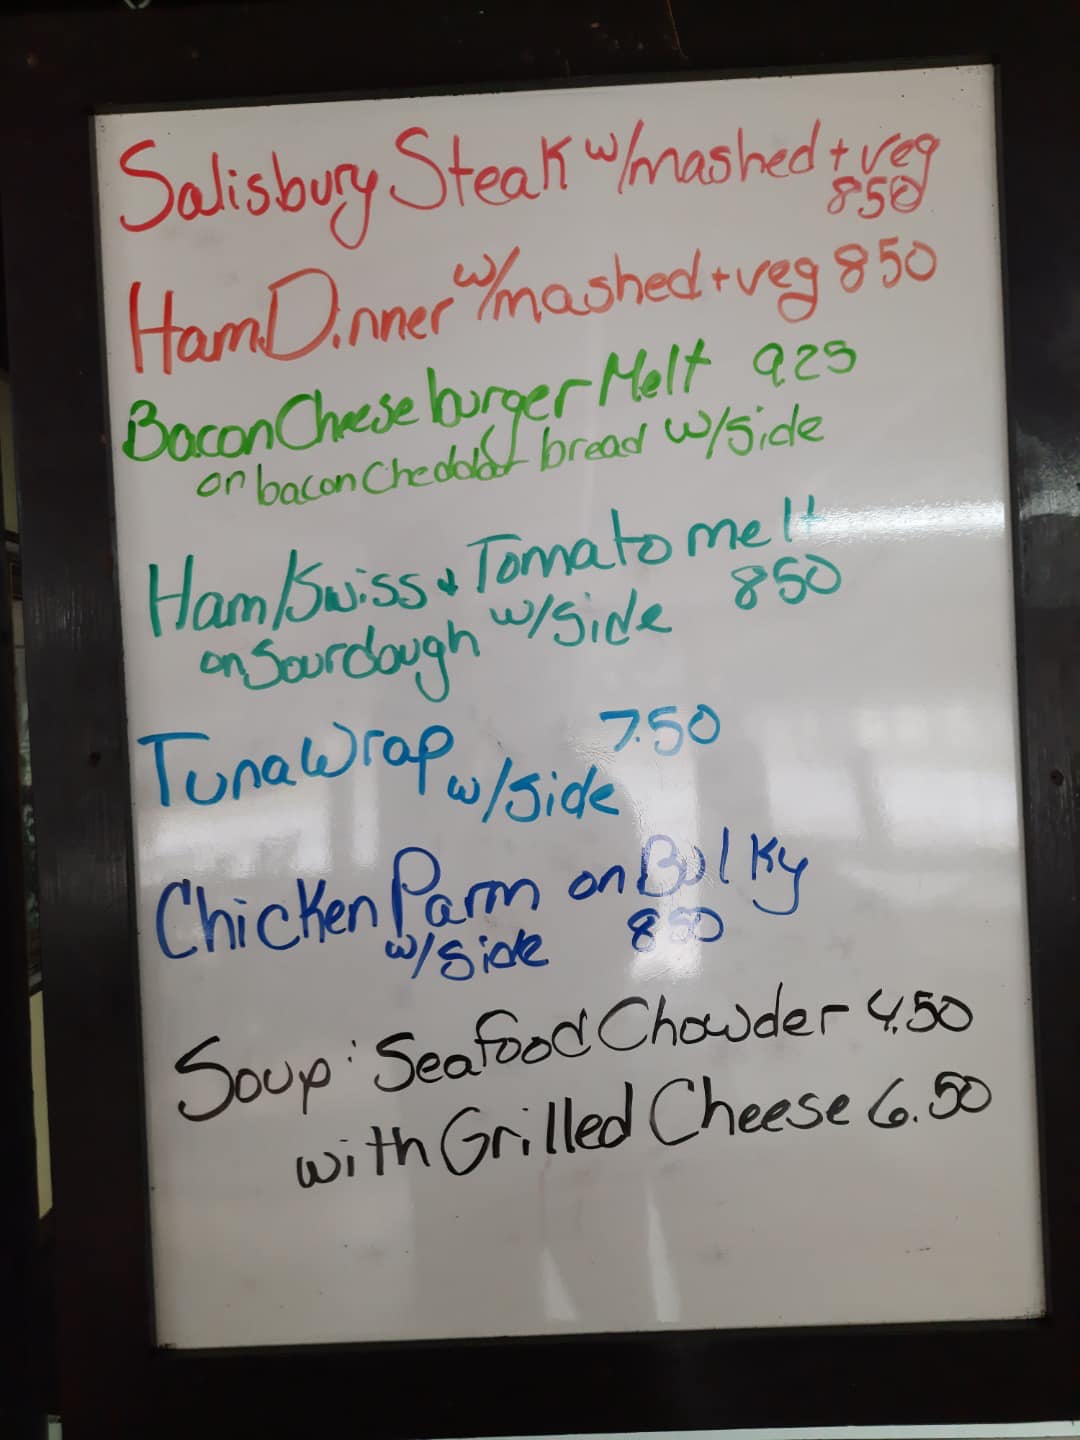 Salisbury Steak w/mashed + veg
850
Ham Dinner w/mashed + veg 850
Bacon Cheeseburger Melt 9.25
on bacon Cheddar bread w/side
Ham/Swiss + Tomato melt
on Sourdough w/side 850
Tuna Wrap 7.50
w/side
Chicken Parm on Bulky
w/side 850
Soup: Seafood Chowder 4.50
with Grilled Cheese 6.50